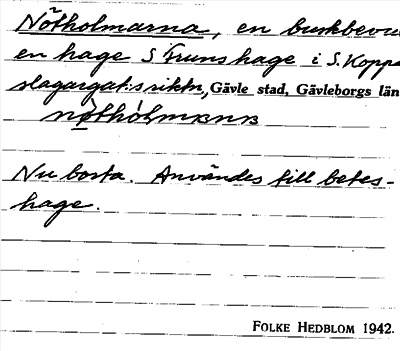 Nötholmarna, en buskbevu
en hage S Fruns hage i S. Koppa
slagargat:s riktn, Gävle stad, Gävleborgs län
nøthòlmana
Nu borta. Användes till betes-
hage.
FOLKE HEDBLOM 1942.